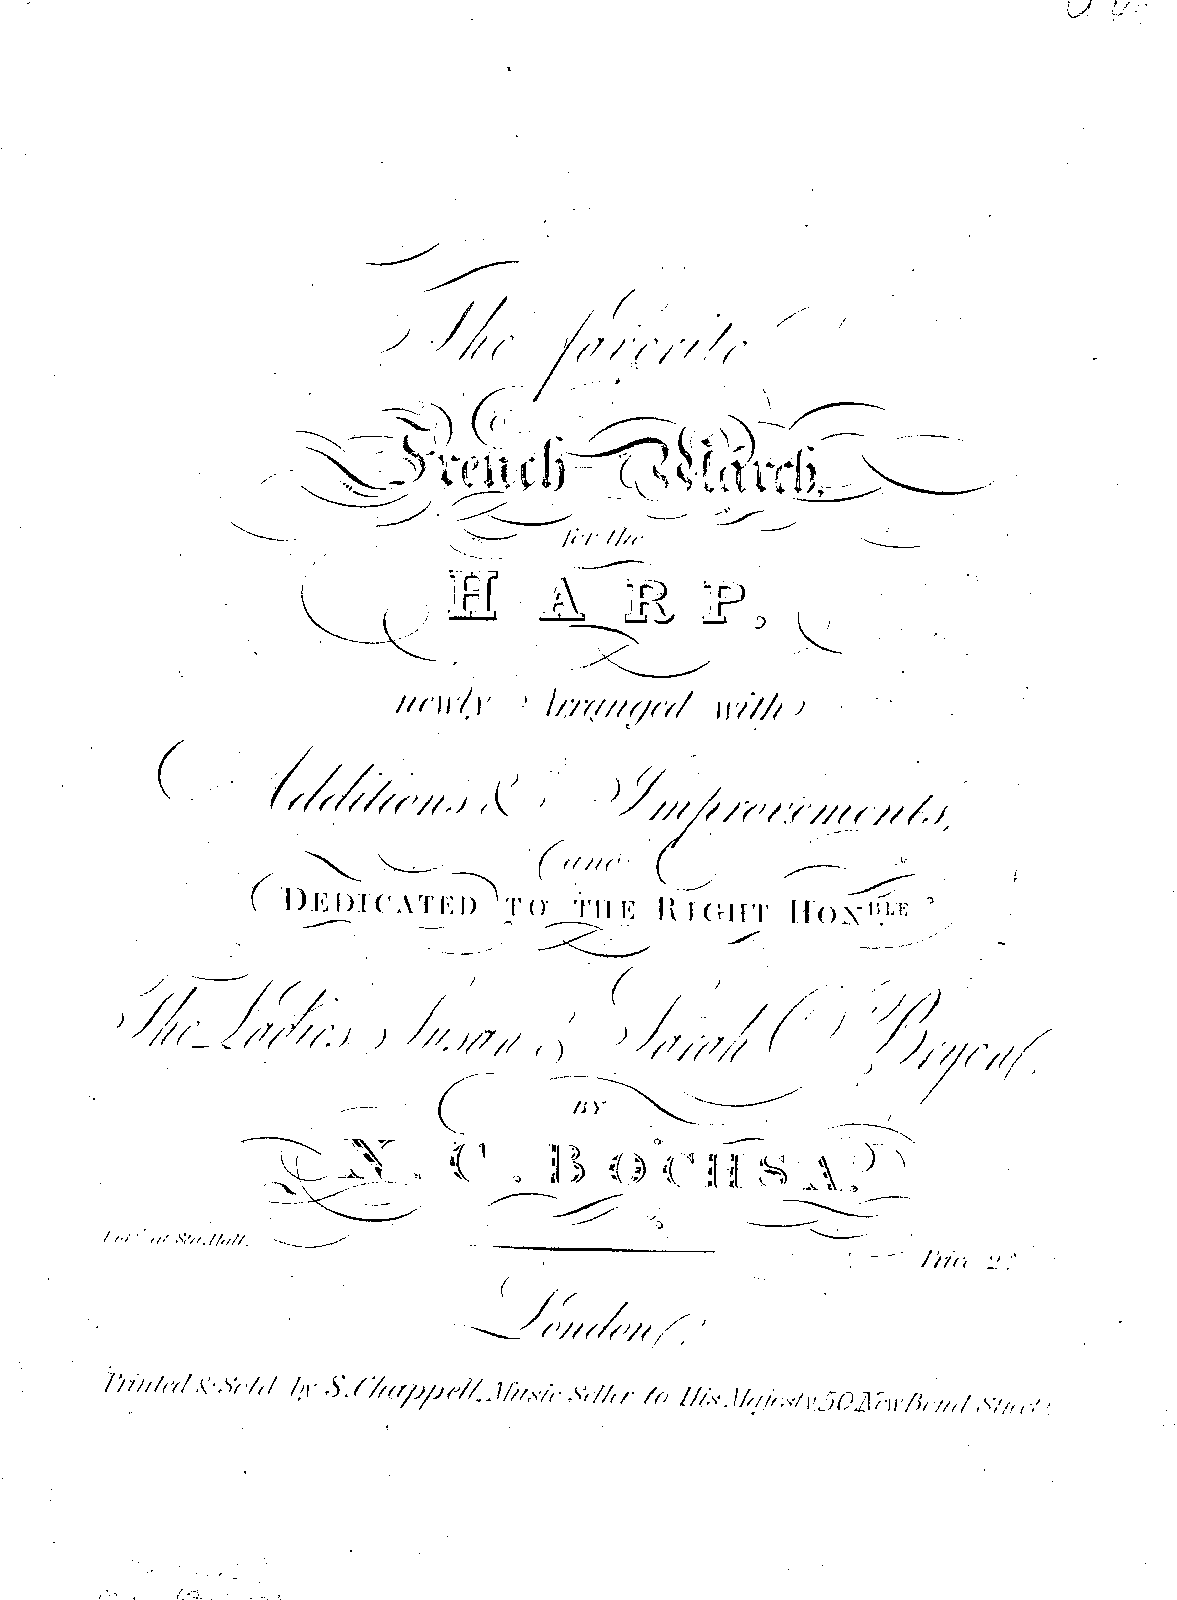 The favorite
French March,
for the
HARP,
newly Arranged with
Additions & Improvements,
and
DEDICATED TO THE RIGHT HONBLE
The Ladies Susan & Sarah
BY
N. C. BOCHSA.
at Sta. Hall.
Price 2
London
Printed & Sold by S. Chappell, Music Seller to His Majesty, 50 New Bond Street